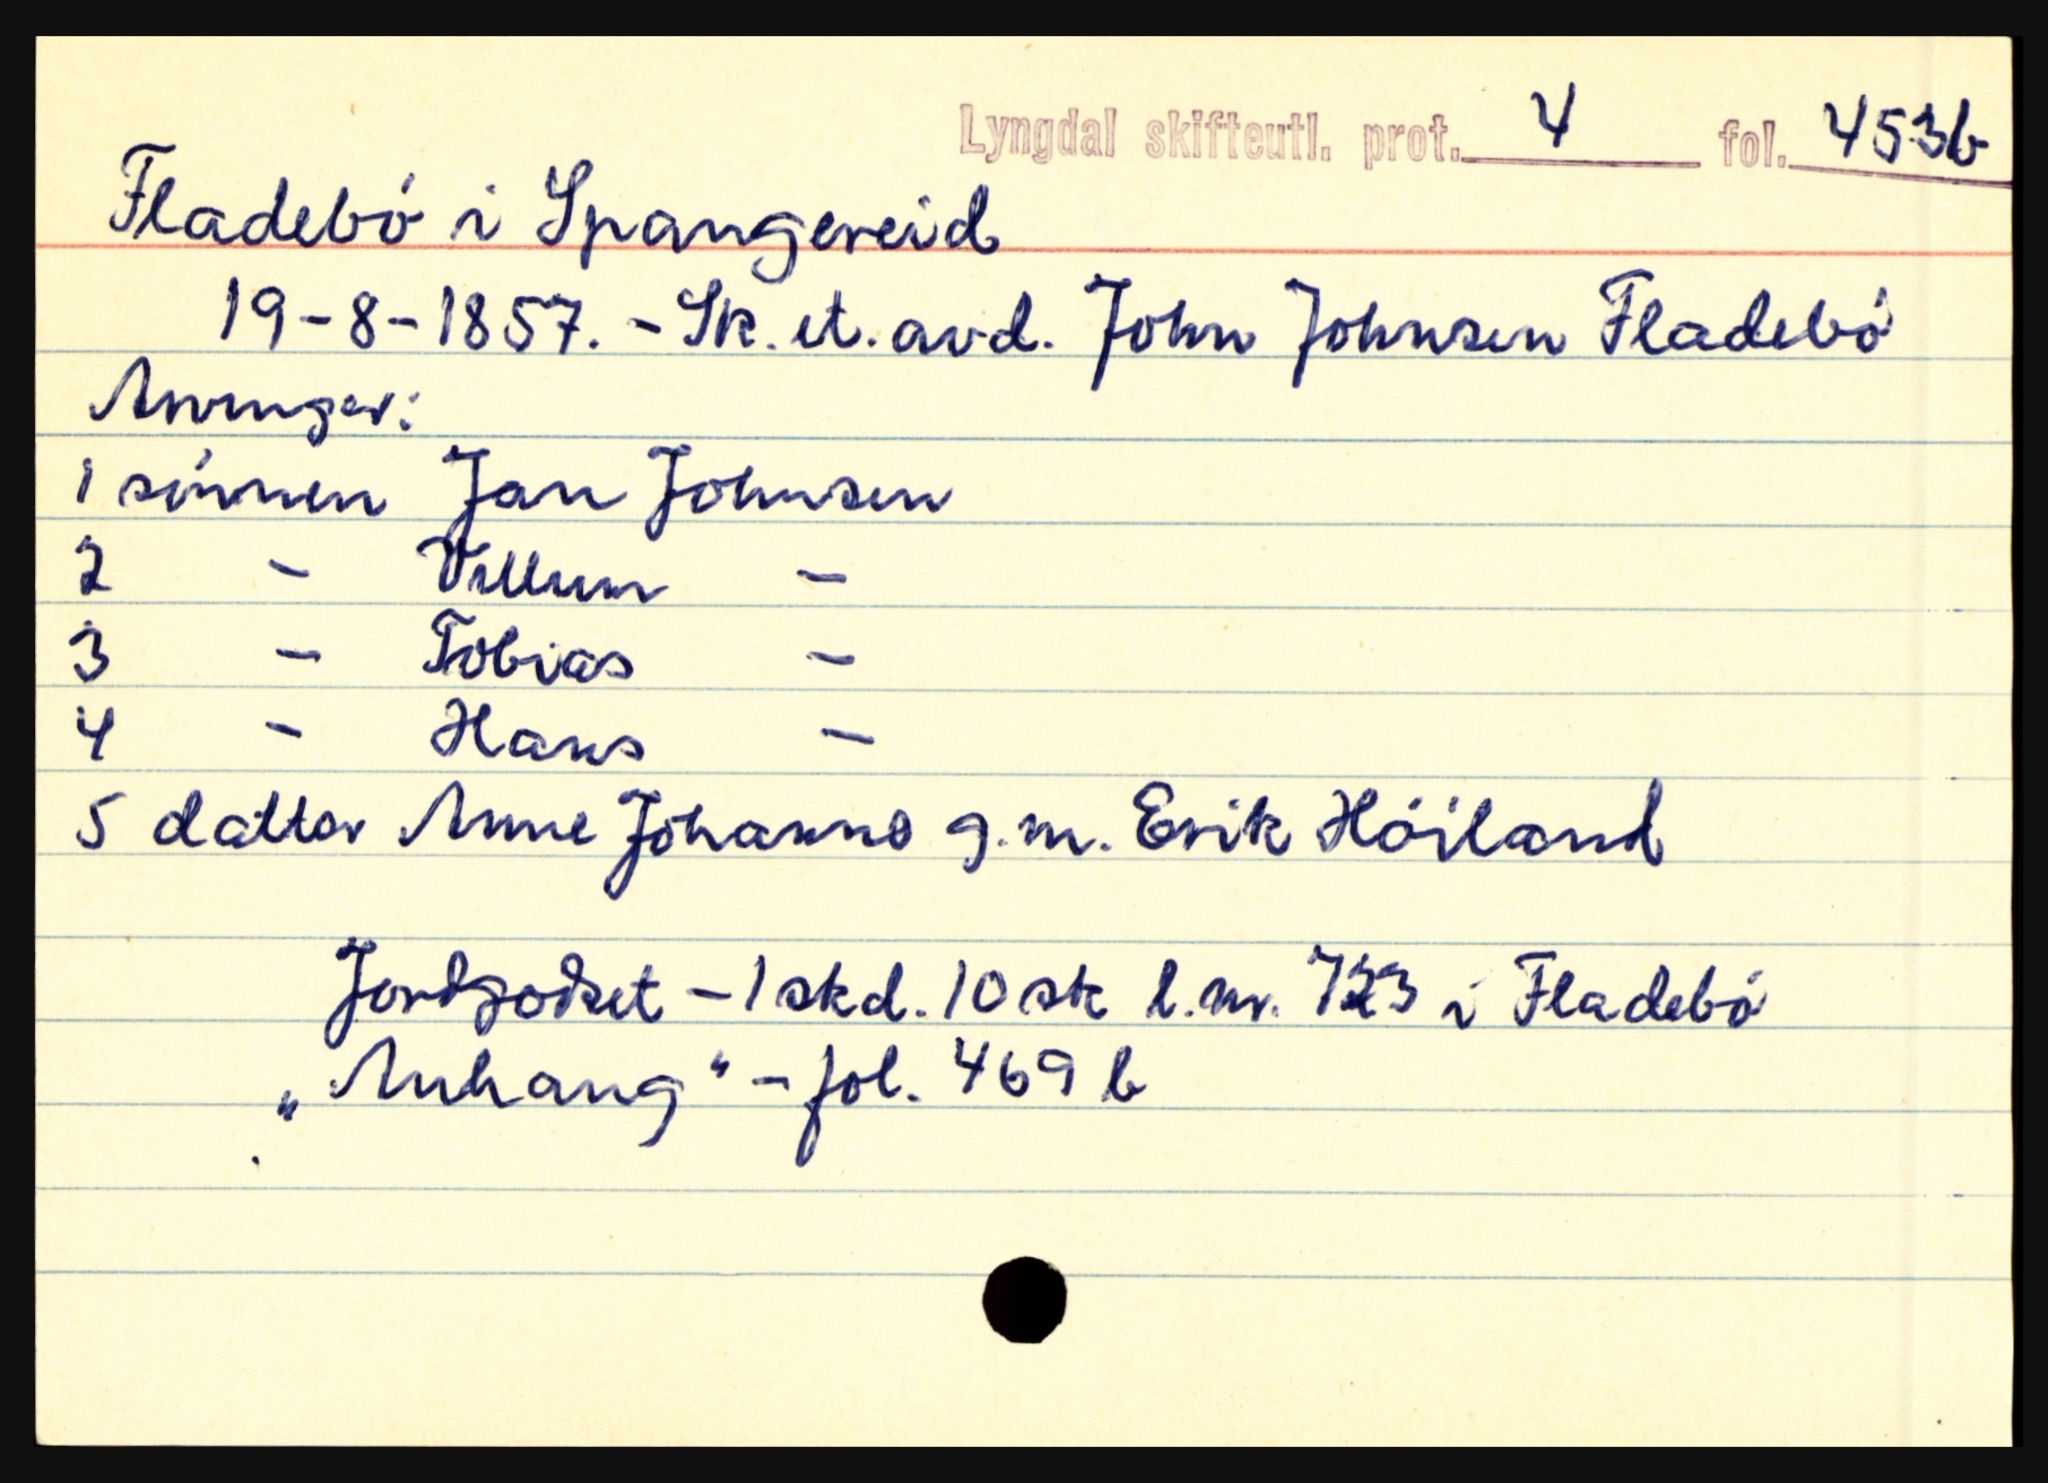 Lyngdal skifteutl. prot. 4 fol. 453b
Fladebó i Spangereid
19-8-1857. - Sk. et. avd. John Johnsen Fladebó
Arvinger:
1 sónnen Jan Johnsen
2 - Villum -
3 - Tobias -
4 - Hans -
5 datter Anne Johanne g.m. Erik Hóiland
Jordgodset - 1 skd. 10 sk l.nr. 723 i Fladebó
„Anhang" - fol. 469 b